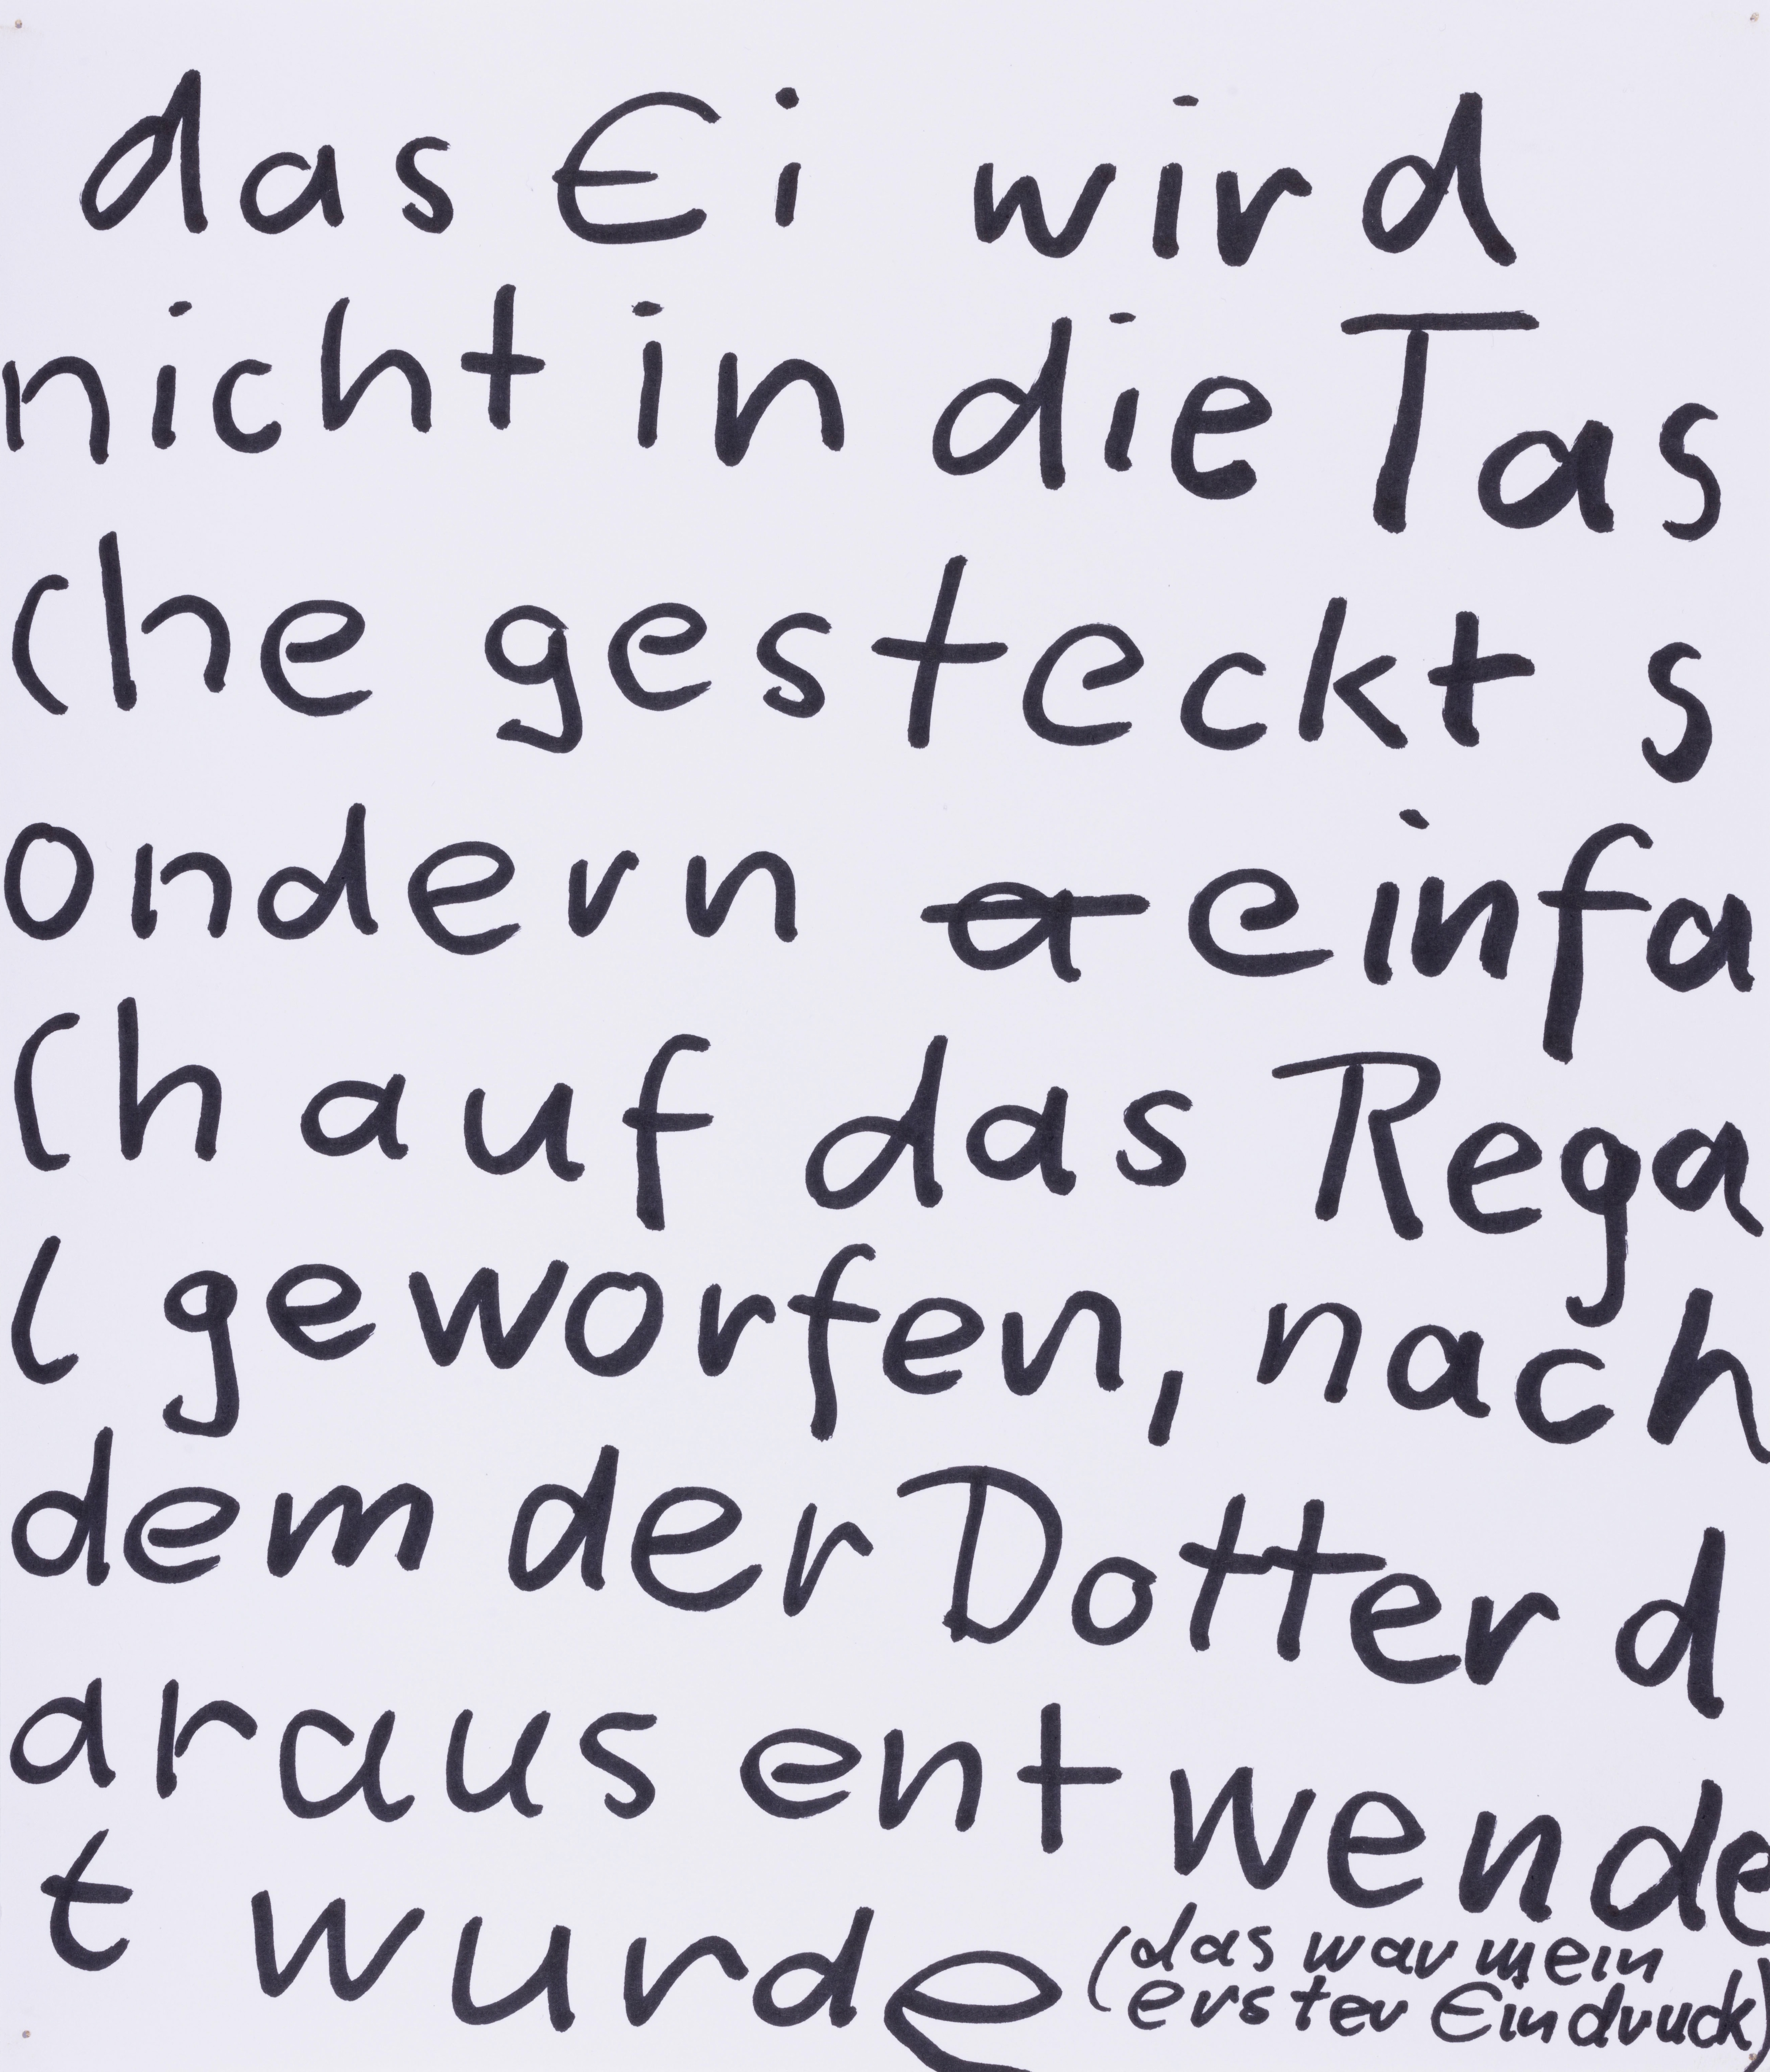 das Ei wird
nicht in die Tas
che gesteckt s
ondern a einfa
ch auf das Rega
l geworfen, nach
dem der Dotter d
araus entwende
t wurde
(das war mein
erster Eindruck)